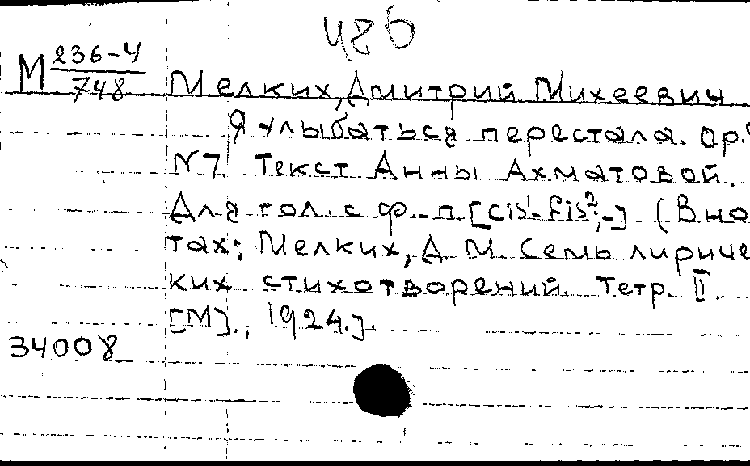 М 236-4/748
Мелких, Дмитрий Михеевич
Я улыбаться перестала. ор.
N7 Текст Анны Ахматовой.
Для гол. с ф.-п. [cis¹-fis²,-] (В но
тах: Мелких, Д. М. Семь лириче
ких стихотворений. Тетр. II.
[М]., 1924.].
34008